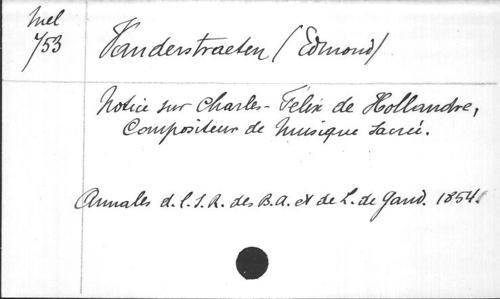 Mel
753
Vanderstraeten (Edmond)
Notice sur Charles-Félix de Hollandre,
Compositeur de Musique Sacrée.
Annales d. l. S. R. des B. A. et de L. de Gand. 1854.